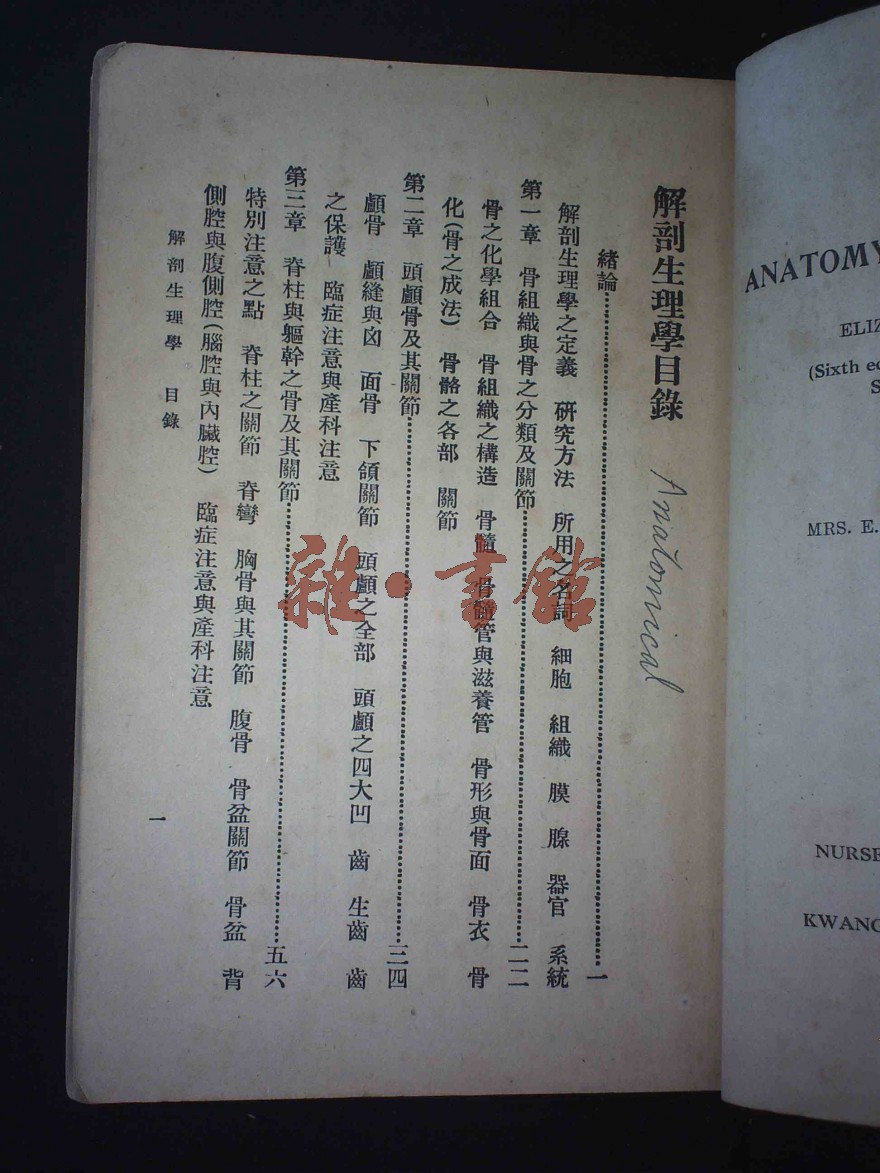 解剖生理學目錄
Amatomical
緒論……一
解剖生理學之定義 研究方法 所用之名詞 細胞 組織 膜 腺 器官 系統
第一章 骨組織與骨之分類及關節……二二
骨之化學組合 骨組織之構造 骨髓 骨髓管與滋養管 骨形與骨面 骨衣 骨
化(骨之成法) 骨骼之各部 關節
第二章 頭顱骨及其關節……三四
顱骨 顱縫與囟 面骨 下頜關節 頭顱之全部 頭顱之四大凹 齒 生齒 齒
之保護 臨症注意與產科注意
第三章 脊柱與軀幹之骨及其關節……五六
特別注意之點 脊柱之關節 脊彎 胸骨與其關節 腹骨 骨盆關節 骨盆 背
側腔與腹側腔(腦腔與內臟腔) 臨症注意與產科注意
解剖生理學 目錄
一
雜·書館
ANATOMY
ELIZ
(Sixth ed
S
MRS. E.
NURSE
KWANG